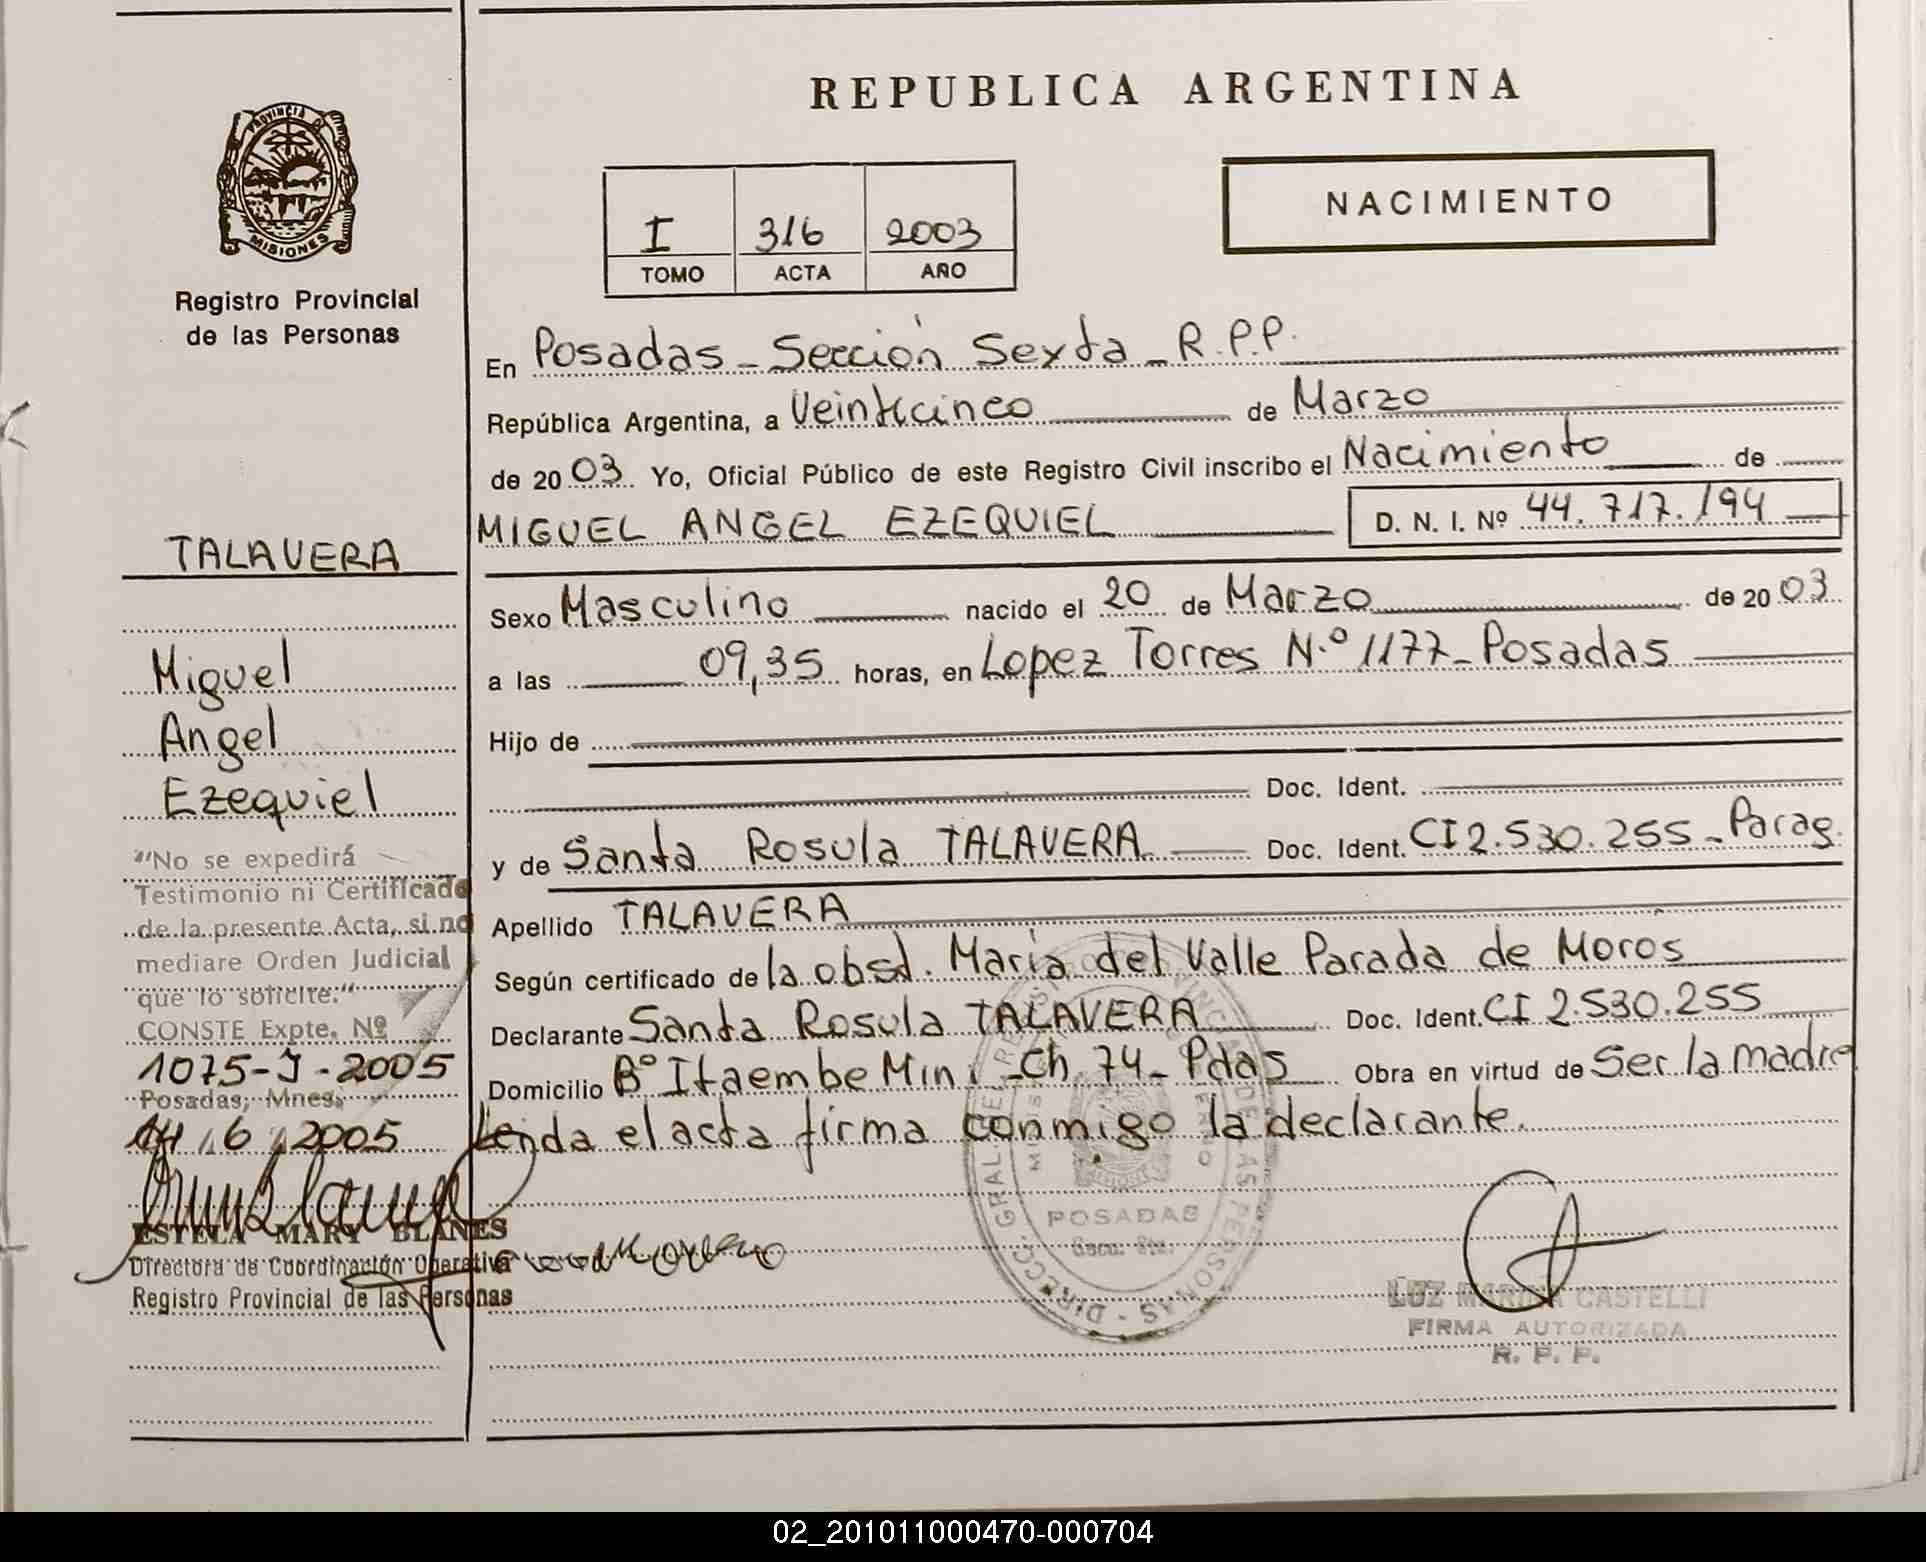 REPUBLICA ARGENTINA
PROVINCIA DE
MISIONES
Registro Provincial
de las Personas
NACIMIENTO
I 316 2003
TOMO ACTA AÑO
En Posadas - Sección Sexta - R.P.P.
República Argentina, a Veinticinco de Marzo
de 2003 Yo, Oficial Público de este Registro Civil inscribo el Nacimiento de
MIGUEL ANGEL EZEQUIEL D. N. I. Nº 44.717.194
Sexo Masculino nacido el 20 de Marzo de 2003
a las 09,35 horas, en Lopez Torres N.º 1177 - Posadas
Hijo de
Doc. Ident.
y de Santa Rosula TALAVERA Doc. Ident. CI 2.530.255 - Parag.
Apellido TALAVERA
Según certificado de la obst. Maria del Valle Parada de Moros
Declarante Santa Rosula TALAVERA Doc. Ident. CI 2.530.255
Domicilio Bº Itaembe Mini - Ch. 74 - Pdas Obra en virtud de Ser la madre
Leida el acta firma conmigo la declarante.
TALAVERA
Miguel
Angel
Ezequiel
"No se expedirá
Testimonio ni Certificado
de la presente Acta, si no
mediare Orden Judicial
que lo solicite."
CONSTE Expte. Nº
1075-J-2005
Posadas, Mnes.
14/6/2005
ESTELA MARY BLANES
Directora de Coordinación Operativa
Registro Provincial de las Personas
POSADAS
LUZ MARINA CASTELLI
FIRMA AUTORIZADA
R. P. P.
02_201011000470-000704